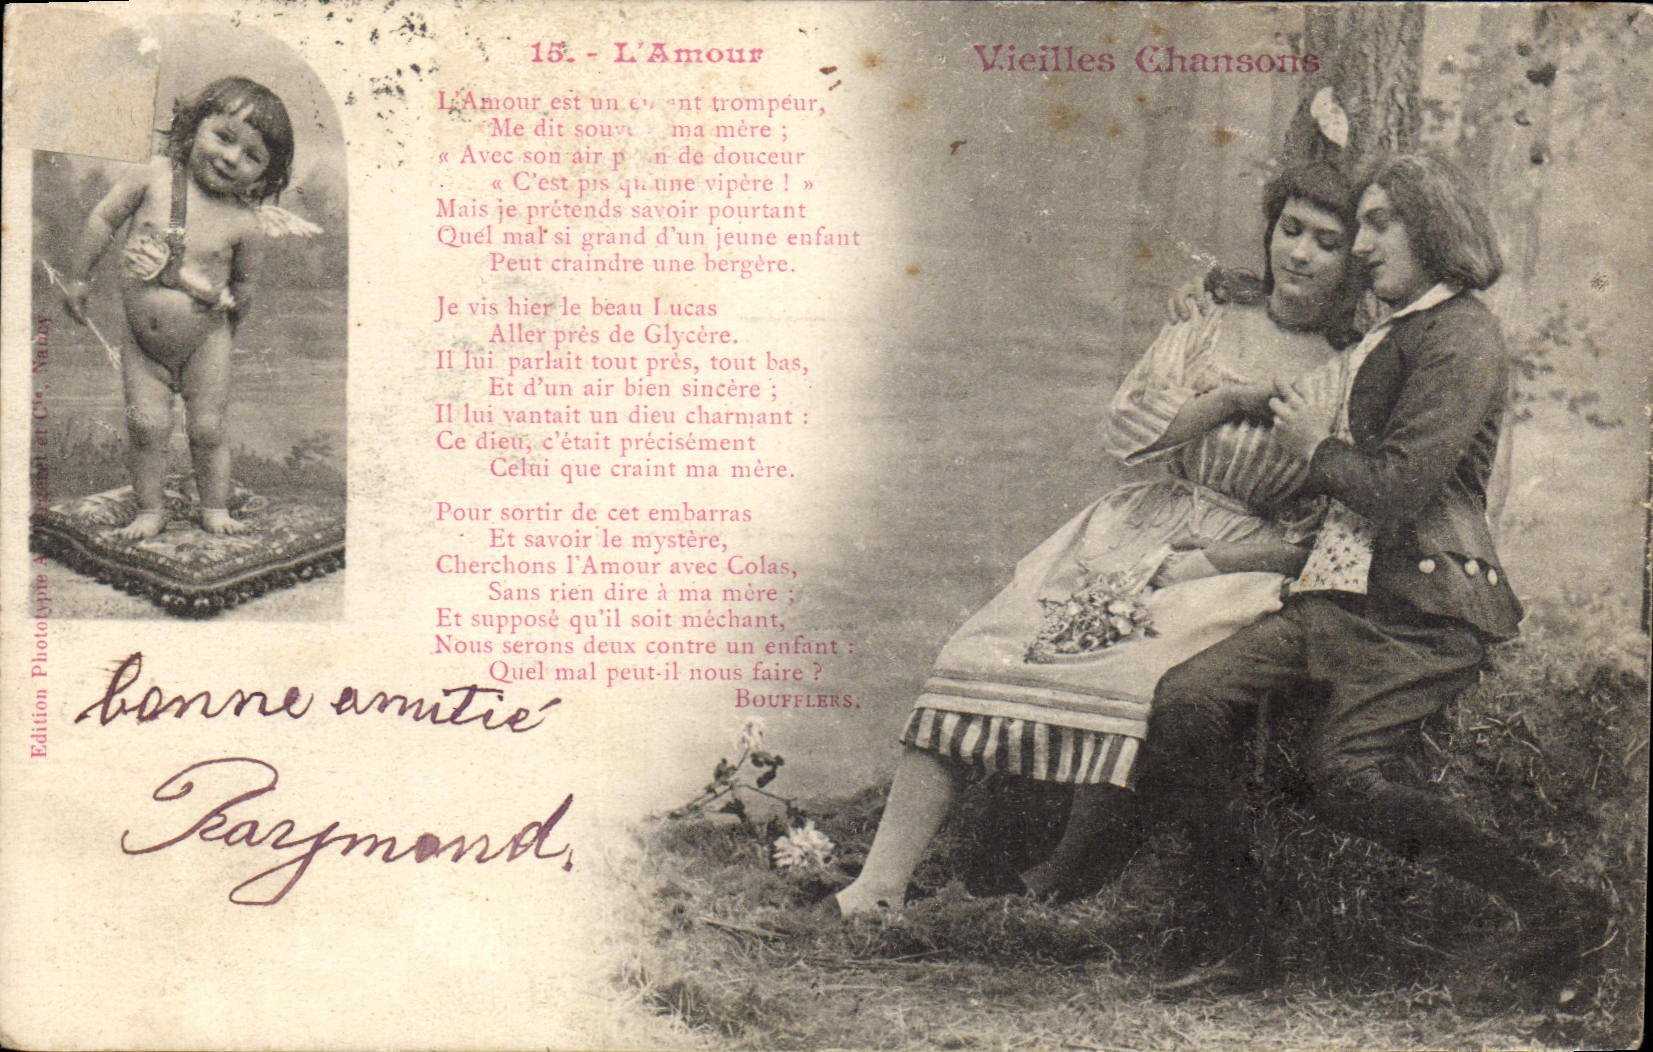 15. - L'Amour
Vieilles Chansons
L'Amour est un trompeur,
Me dit ma mère ;
« Avec son air de douceur
« C'est pis une vipère ! »
Mais je prétends savoir pourtant
Quel mal si grand d'un jeune enfant
Peut craindre une bergère.
Je vis hier le beau Lucas
Aller près de Glycère.
Il lui parlait tout près, tout bas,
Et d'un air bien sincère ;
Il lui vantait un dieu charmant :
Ce dieu, c'était précisément
Celui que craint ma mère.
Pour sortir de cet embarras
Et savoir le mystère,
Cherchons l'Amour avec Colas,
Sans rien dire à ma mère ;
Et supposé qu'il soit méchant,
Nous serons deux contre un enfant :
Quel mal peut-il nous faire ?
BOUFFLERS.
Edition Phototypie et Cie, Nancy
bonne amitié
Raymond.